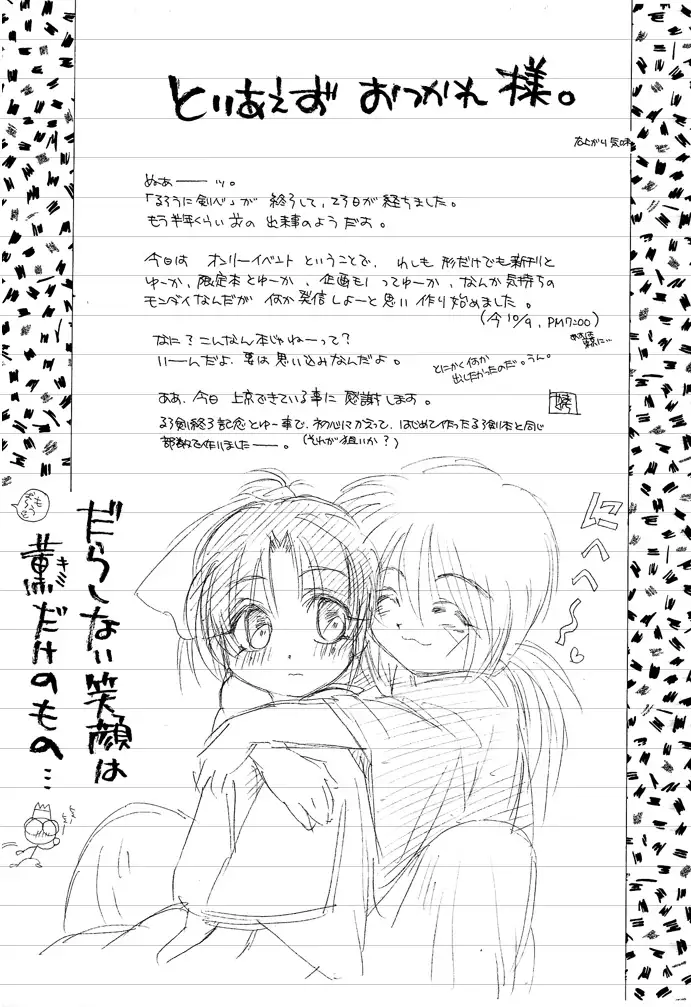 とりあえず おつかれ様。
ぬぁーーーッ。
「るろうに剣心」が 終って、23日が経ちました。
もう半年くらい前の 出来事のようだよ。
今日は オンリーイベント ということで、わしも 形だけでも新刊と
ゆーか、限定本とゆーか、企画もってゆーか、なんか気持ちの
モンダイなんだが 何か発信しよーと思い 作り始めました。
(今 10/9、PM7:00)
なに？こんなん本じゃねーって？
いーんだよ、要は思い込みなんだよ。
とにかく何か
出したかったのだ。うん。
ああ、今日 上京できている事に 感謝します。
るろ剣終了記念とゆー事で、初心にかえって、はじめて作ったるろ剣本と同じ
部数で作りましたーー。(それが狙いか？)
にへへへ〜♡
だらしない笑顔は
薫(キミ)だけのもの…